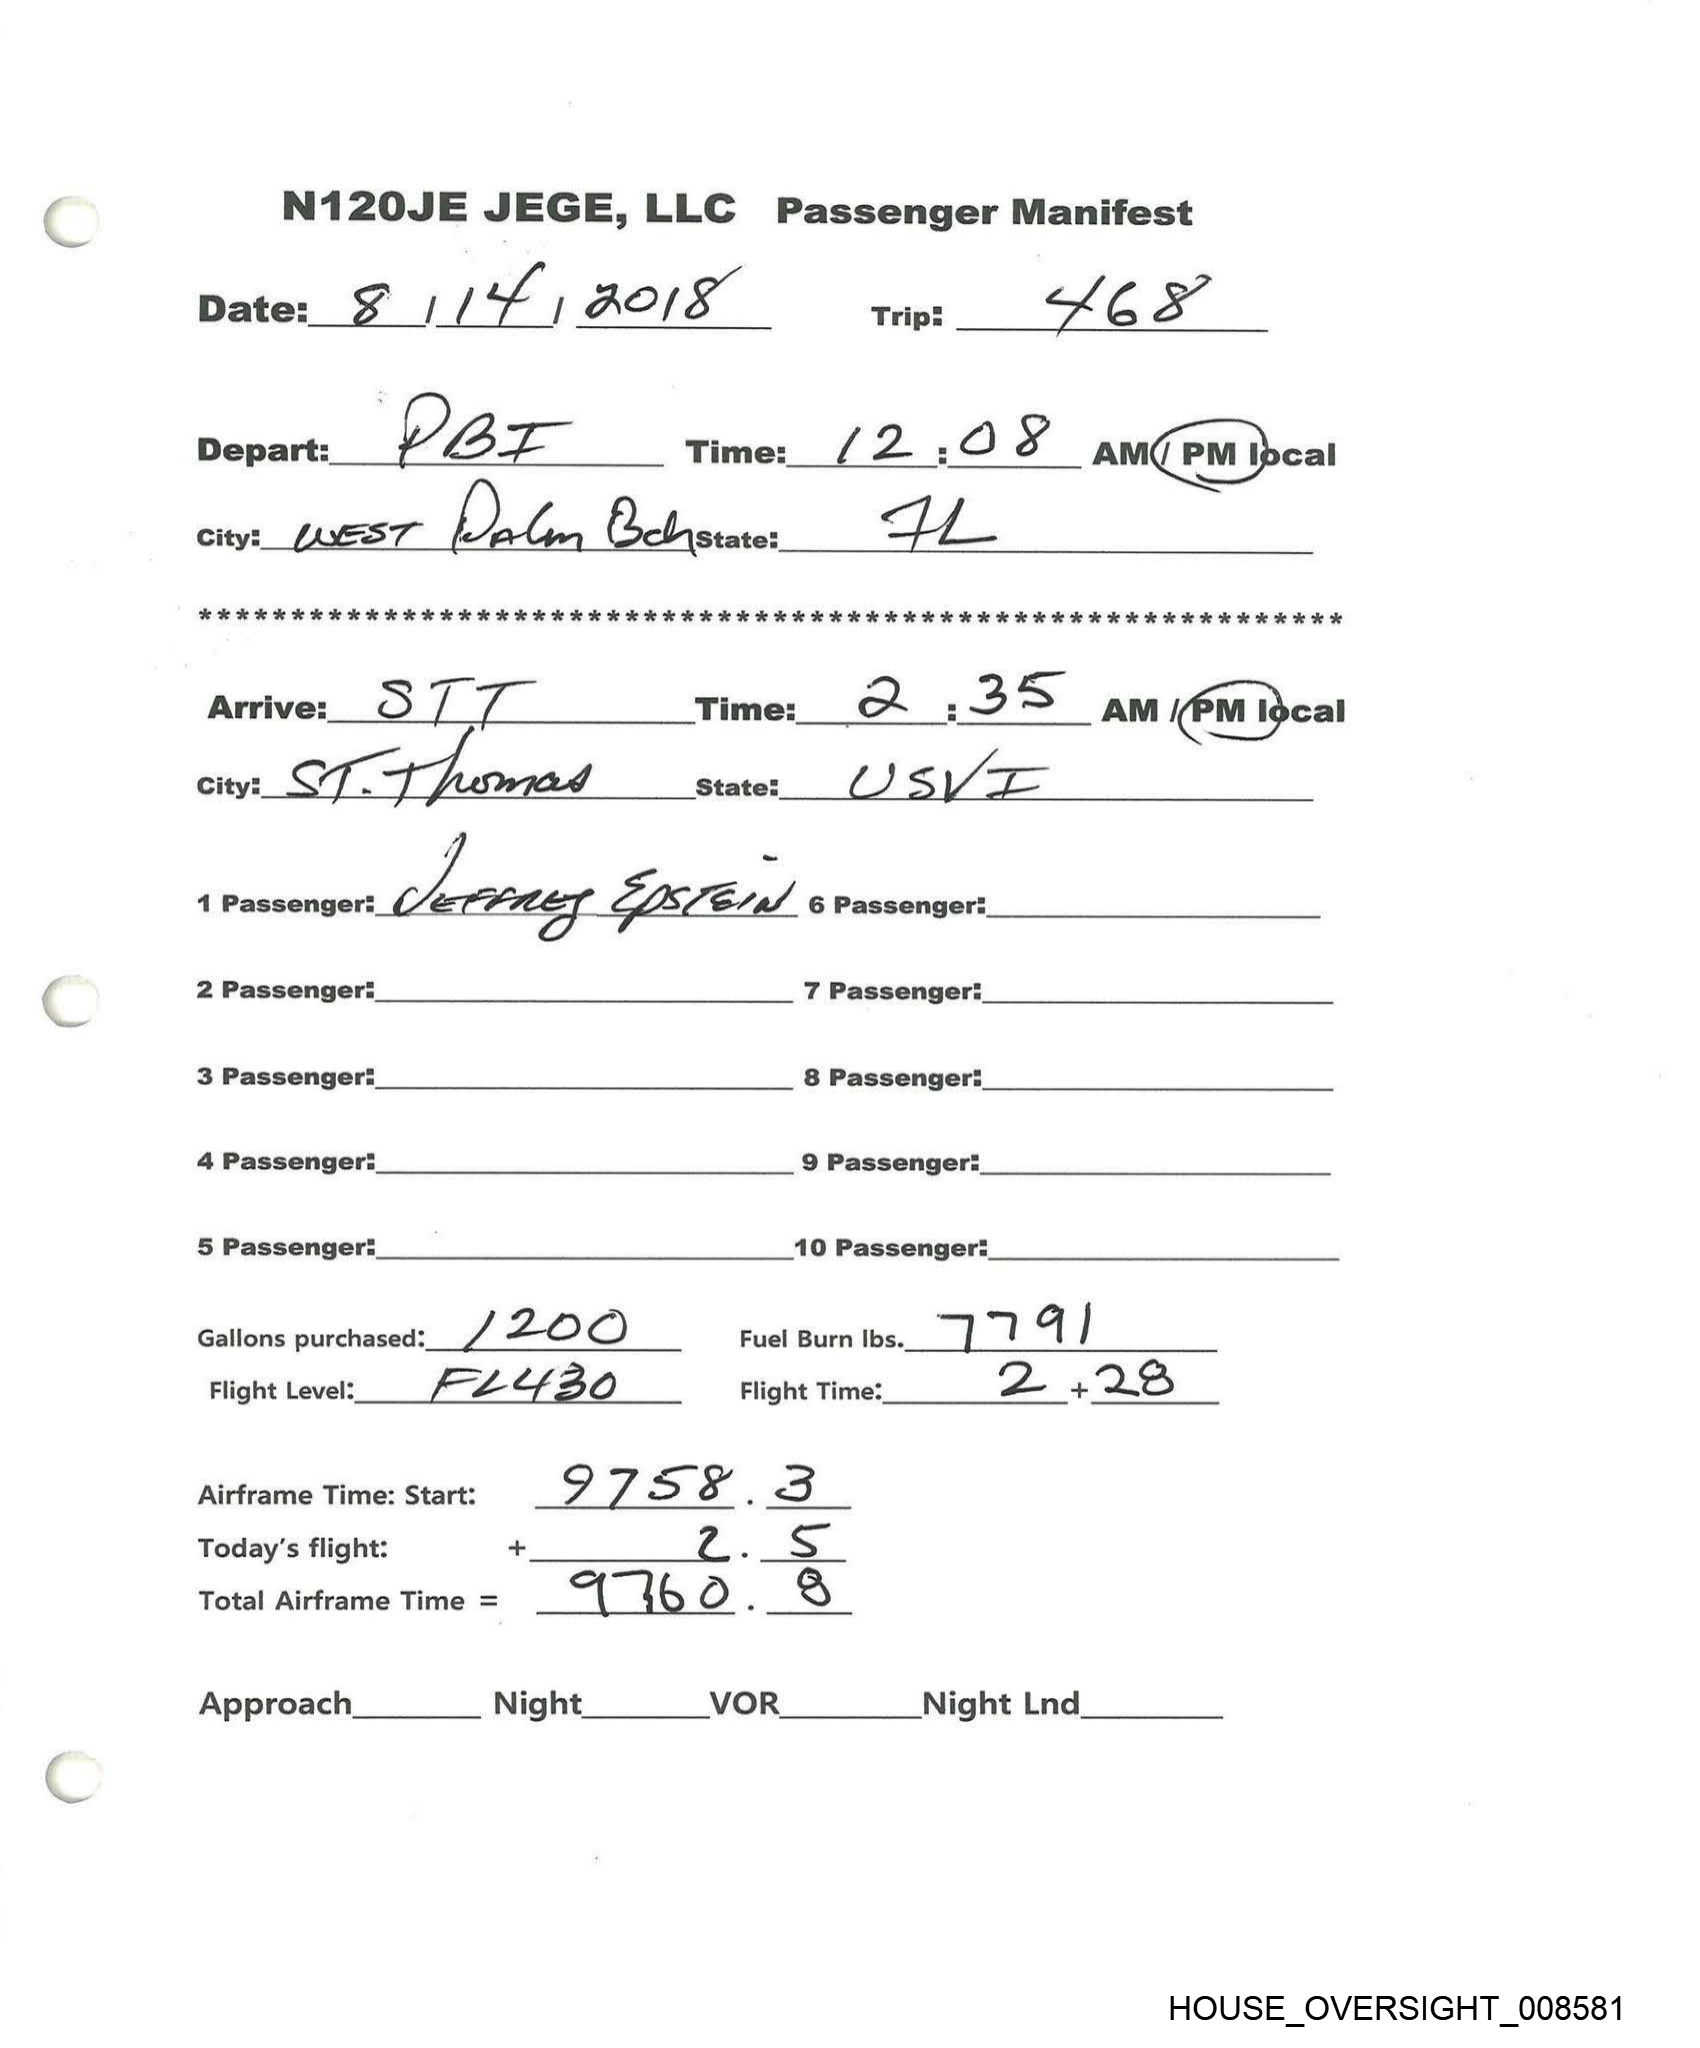 N120JE JEGE, LLC Passenger Manifest
Date: 8 / 14 / 2018 Trip: 468
Depart: PBI Time: 12 : 08 AM / PM local
City: WEST Palm Bch State: FL
******************************************************************
Arrive: STT Time: 2 : 35 AM / PM local
City: ST. Thomas State: USVI
1 Passenger: Jeffrey Epstein 6 Passenger:
2 Passenger: 7 Passenger:
3 Passenger: 8 Passenger:
4 Passenger: 9 Passenger:
5 Passenger: 10 Passenger:
Gallons purchased: 1200 Fuel Burn lbs. 7791
Flight Level: FL430 Flight Time: 2 + 28
Airframe Time: Start: 9758 . 3
Today's flight: + 2 . 5
Total Airframe Time = 9760 . 8
Approach Night VOR Night Lnd
HOUSE_OVERSIGHT_008581